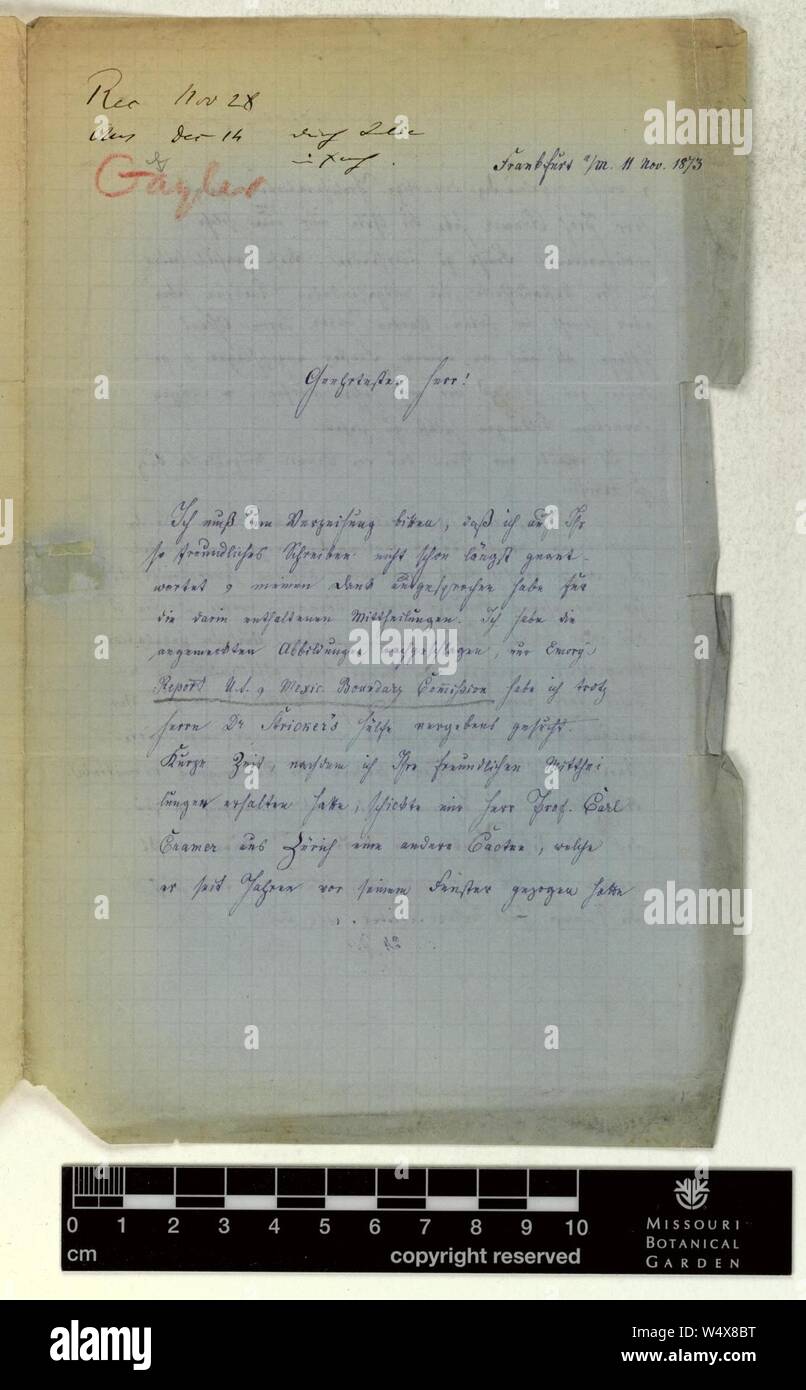 Rec Nov 28
Ans Dec 14
Geyler
Frankfurt a/M. 11 Nov. 1873
Geehrtester Herr!
Ich muß um Verzeihung bitten, daß ich auf Ihr
so freundliches Schreiben nicht schon längst geant-
wortet & meinen Dank ausgesprochen habe für
die darin enthaltenen Mittheilungen. Ich habe die
angemerkten Abbildungen nachgeschlagen, nur Emory
Report U.S. & Mexic. Boundary Commission habe ich trotz
Herrn Dr Stricker's Hülfe vergebens gesucht.
Kurze Zeit, nachdem ich Ihre freundlichen Mitthei
lungen erhalten hatte, schickte mir Herr Prof. Carl
Cramer aus Zürich eine andere Cactee, welche
er seit Jahren vor seinem Fenster gezogen hatte
0 1 2 3 4 5 6 7 8 9 10
cm
copyright reserved
MISSOURI
BOTANICAL
GARDEN
alamy
a
alamy
Image ID: W4X8BT
www.alamy.com